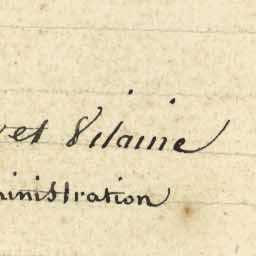 et Vilaine
ministration